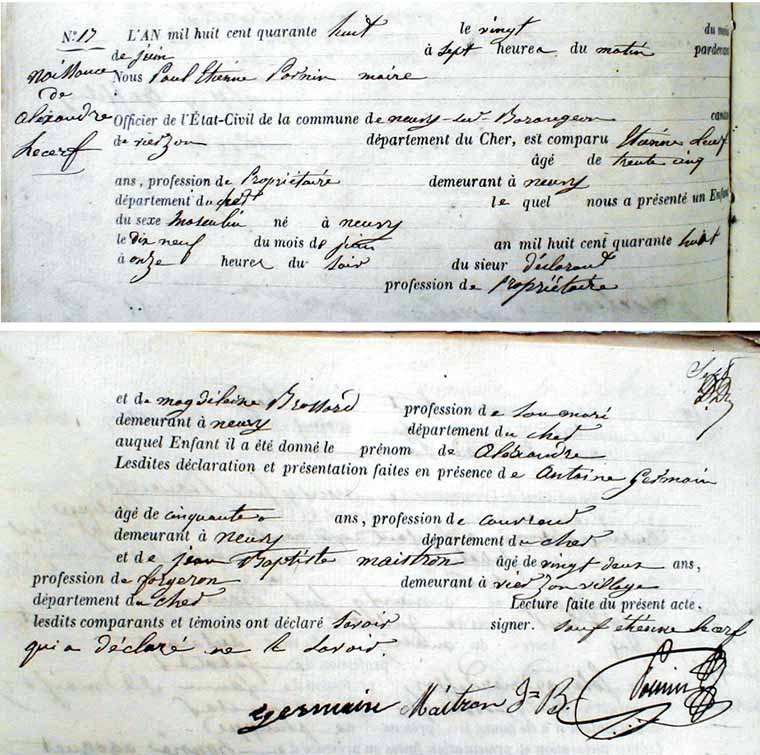 N.° 17
naissance
de
alexandre
Lecerf
L'AN mil huit cent quarante huit le vingt du mois
de juin à sept heures du matin pardevant
Nous Paul Etienne Pornin maire
Officier de l'État-Civil de la commune de neuvy-sur-Barangeon
de vierzon département du Cher, est comparu Etienne Lecerf
âgé de trente cinq
ans, profession de Propriétaire demeurant à neuvy
département du cher le quel nous a présenté un Enfant
du sexe masculin né à neuvy
le dix neuf du mois de juin an mil huit cent quarante huit
à onze heures du soir du sieur déclarant
profession de Propriétaire
et de magdelaine Brossard profession de son mari
demeurant à neuvy département du cher
auquel Enfant il a été donné le prénom de alexandre
Lesdites déclaration et présentation faites en présence de Antoine Germain
âgé de cinquante ans, profession de couvreur
demeurant à neuvy département du cher
et de jean Baptiste maistron âgé de vingt deux ans,
profession de forgeron demeurant à vierzon village
département du cher Lecture faite du présent acte,
lesdits comparants et témoins ont déclaré savoir signer. sauf étienne lecerf
qui a déclaré ne le savoir.
germain Maitron J=B. Pornin